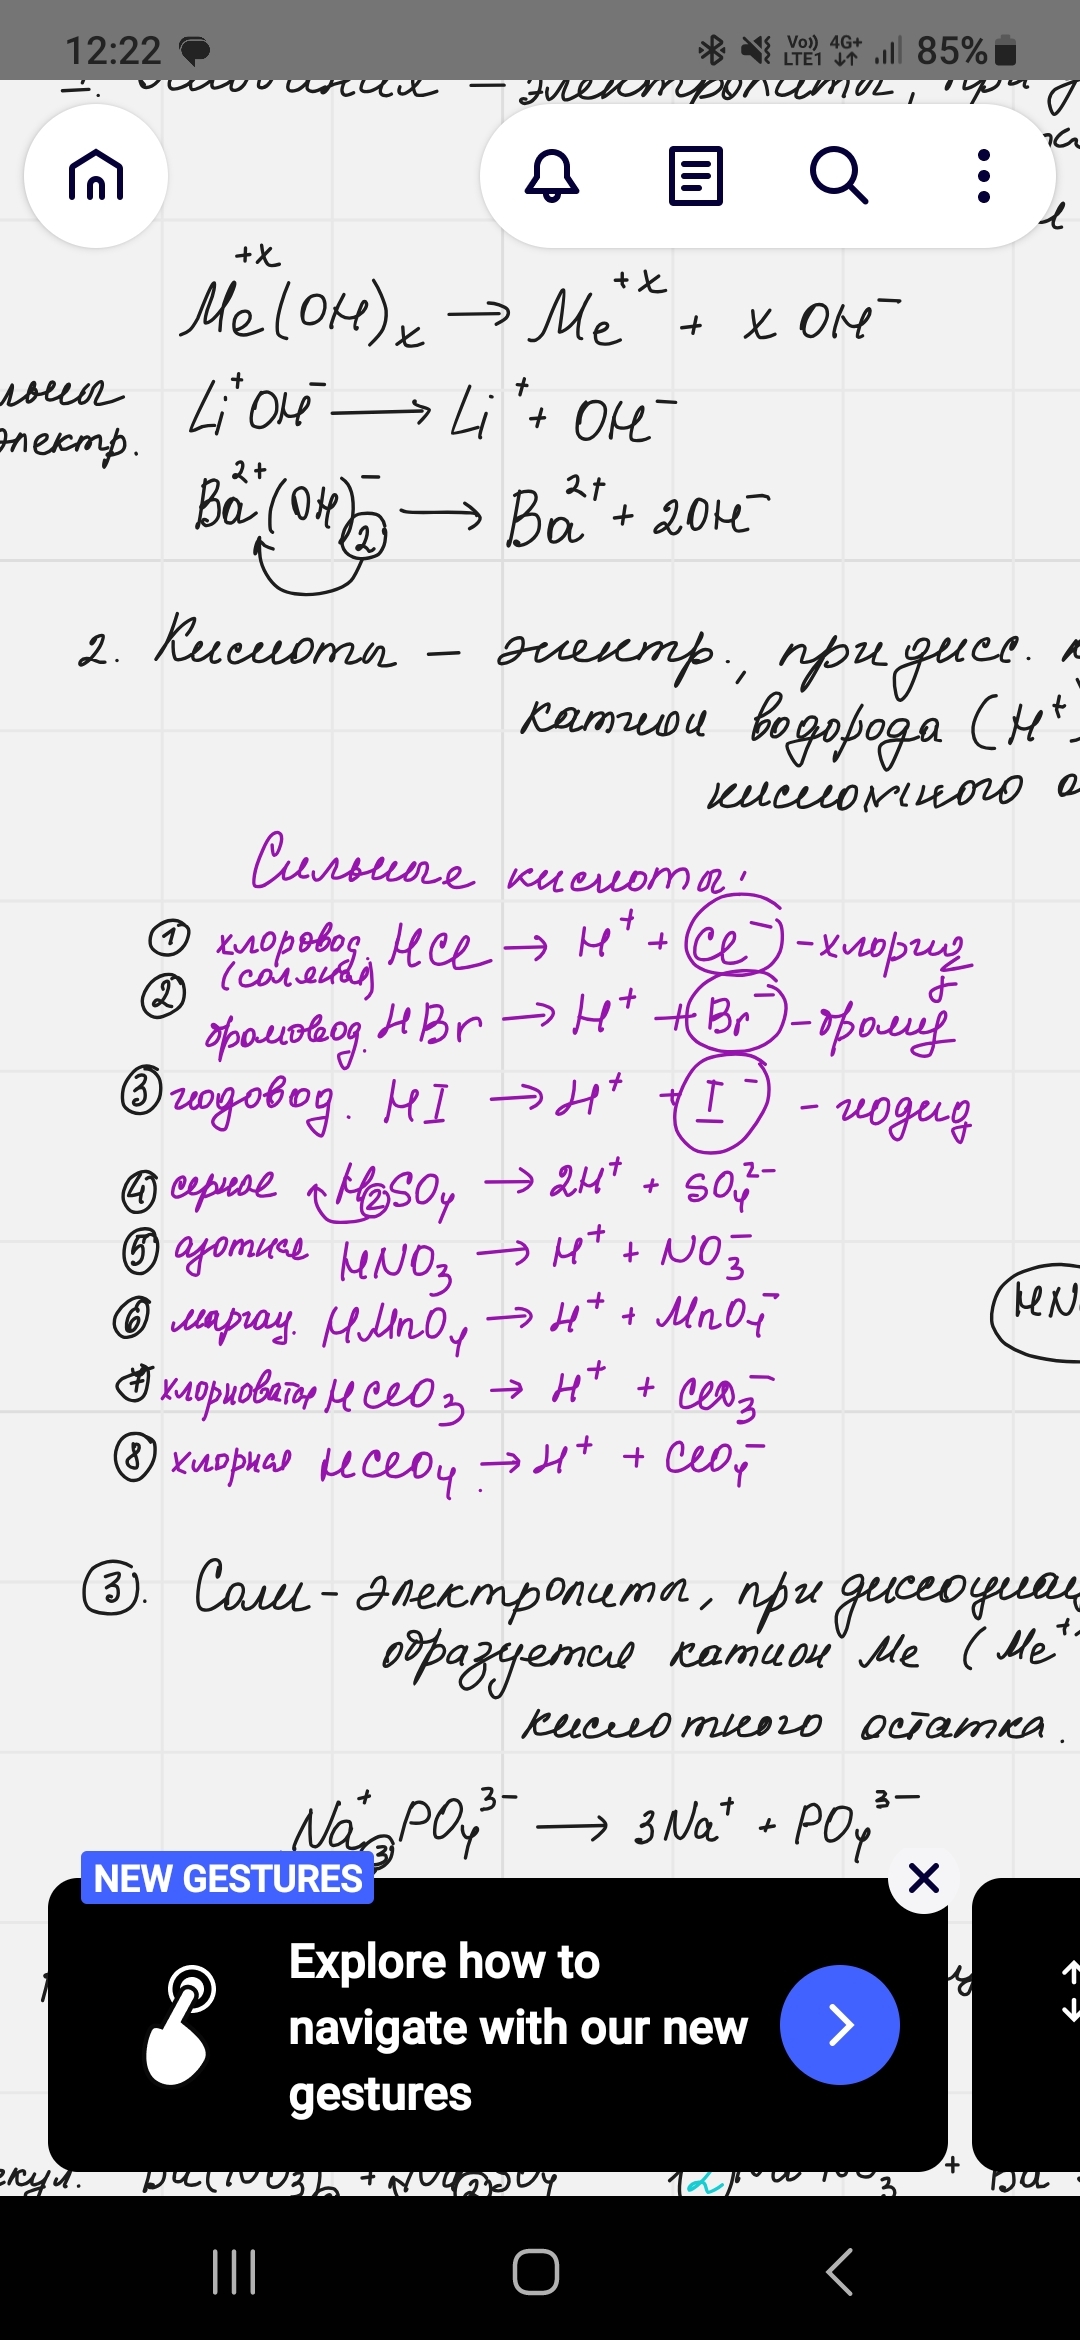 12:22 Vo)) LTE1 4G+ 85%
+x
Me(OH)x → Me+x + x OH−
Li+OH− → Li+ + OH−
электр.
Ba2+(OH)2− → Ba2+ + 2OH−
2. Кислоты – электр., при дисс.
катион водорода (H+)
кислотного о
Сильные кислоты:
① хлоровод. HCl → H+ + Cl− – хлорид
(соляная)
② бромовод. HBr → H+ + Br− – бромид
③ йодовод. HI → H+ + I− – йодид
④ серная H2SO4 → 2H+ + SO42−
⑤ азотная HNO3 → H+ + NO3−
HN
⑥ марган. HMnO4 → H+ + MnO4−
⑦ хлорноватая HClO3 → H+ + ClO3−
⑧ хлорная HClO4 → H+ + ClO4−
③. Соли – электролиты, при диссоциац
образуется катион Me (Me+
кислотного остатка.
Na+3PO43− → 3Na+ + PO43−
NEW GESTURES
Explore how to
navigate with our new
gestures